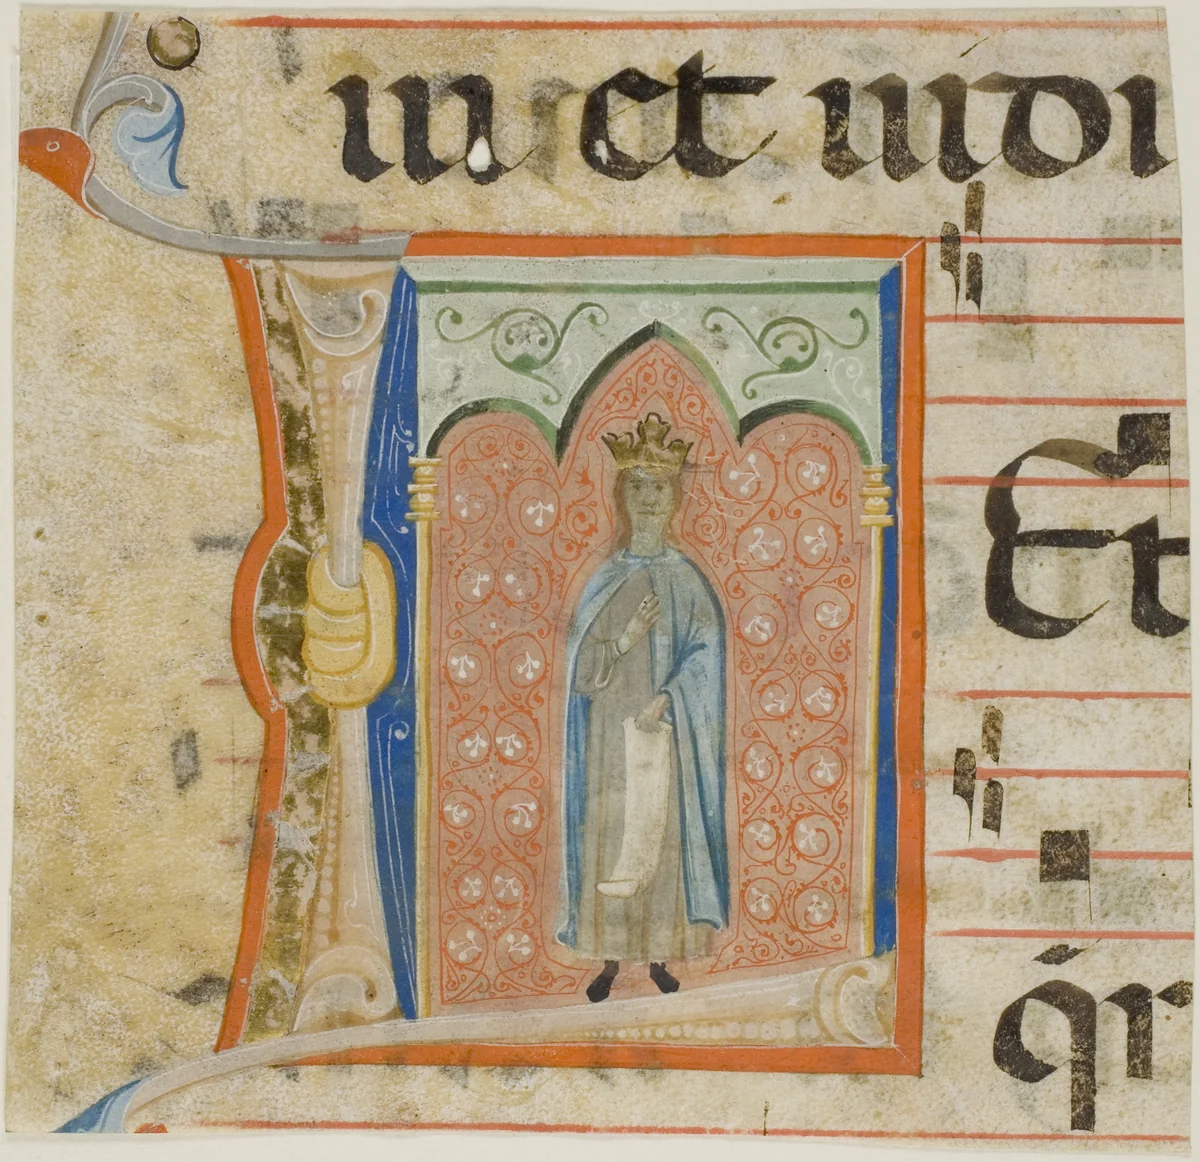 in et indi
Et
qr